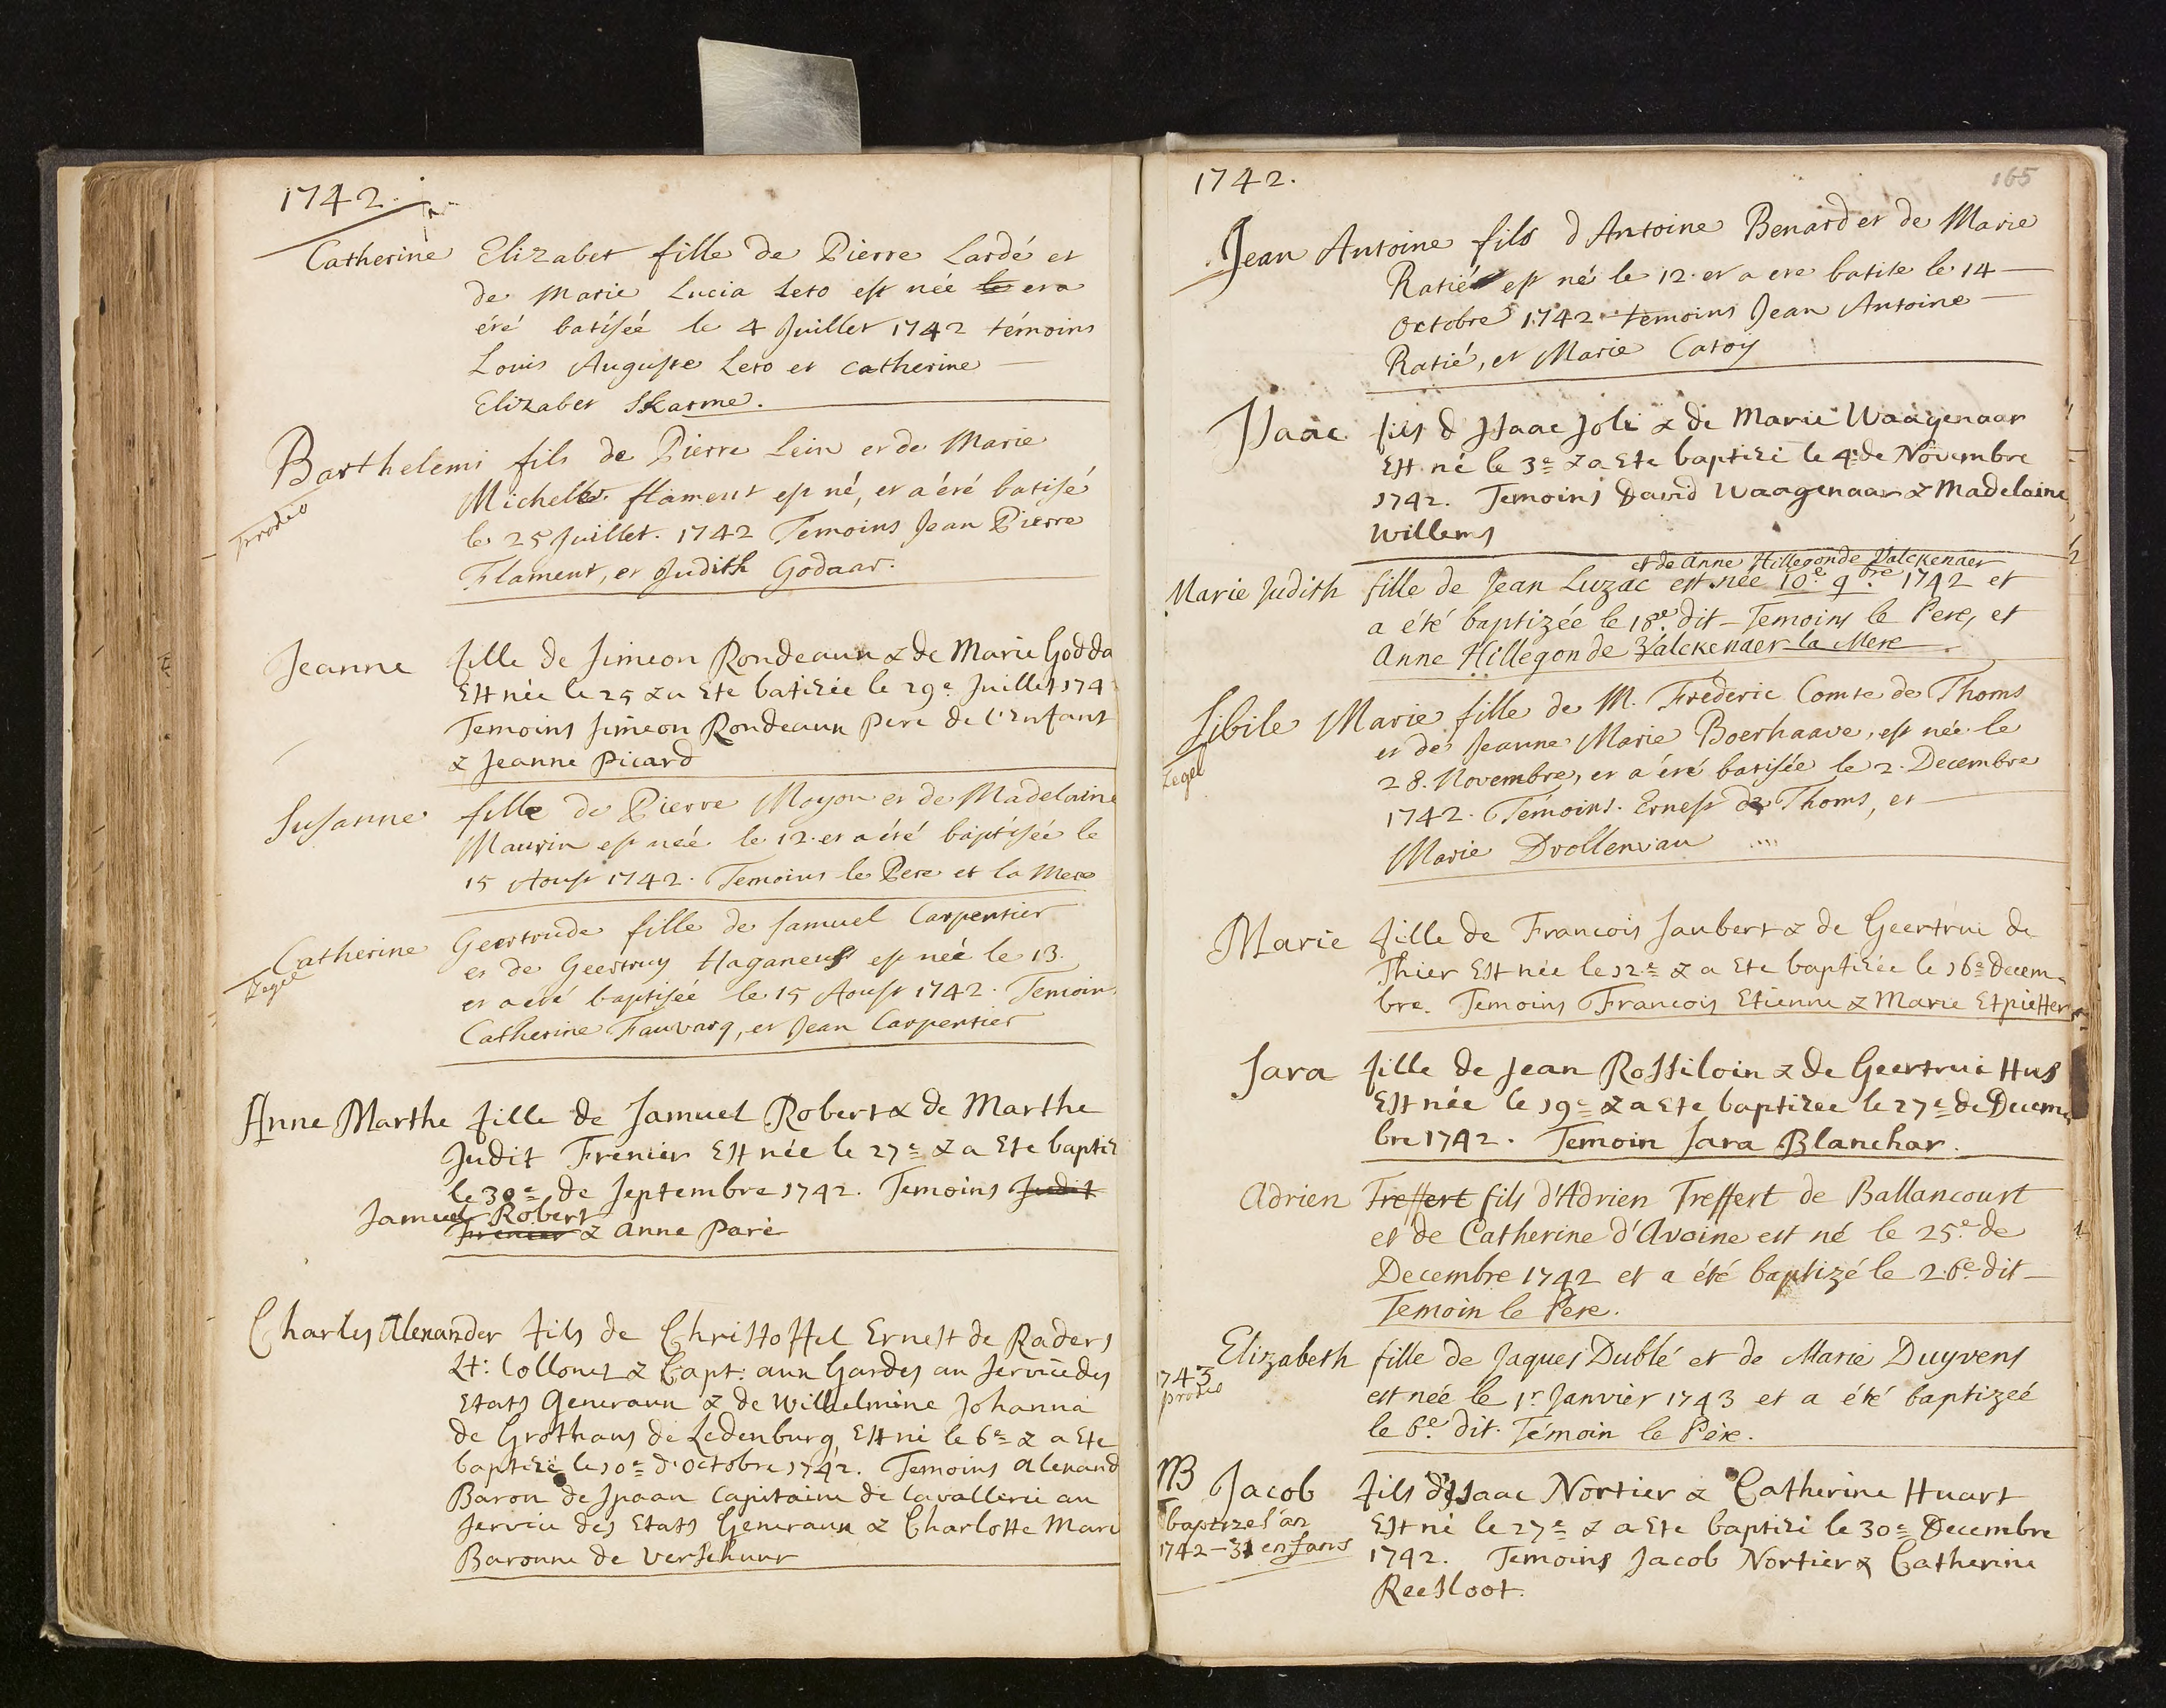 1742.
Catherine Elizabet fille de Pierre Lardé et
de Marie Lucia Leto est née le et a
été batisée le 4 Juillet 1742 témoins
Louis Auguste Leto et Catherine
Elizabet Skarme.
Barthelemi fils de Pierre Lein et de Marie
Michelle flament est né, et a été batisé
prodeo
le 25 Juillet. 1742 Temoins Jean Pierre
Flament, et Judith Godaar.
Jeanne fille de Simeon Rondeaux & de Marie Godda
Est née le 25 & a Ete batizée le 29e Juillet 174
Temoins Simeon Rondeaux Pere de l'Enfant
& Jeanne Picard
Susanne fille de Pierre Moyon et de Madelaine
Maurin est née le 12. et a été baptisée le
15 Aoust 1742. Temoins le Pere et la Mere
Catherine Geertrude fille de Samuel Carpentier
Zegel
et de Geertruy Haganeus est née le 13.
et a été baptisée le 15 Aoust 1742. Temoins
Catherine Fauvarq, et Jean Carpentier
Anne Marthe fille de Samuel Robert & de Marthe
Judit Frenier Est née le 27e & a Ete baptiz
le 30e de Septembre 1742. Temoins Judit
Samuel Robert
Frenier & Anne Paré
Charles Alexander fils de Christoffel Ernest de Raders
Lt: Collonel & Capt: aux Gardes au Service des
Etats Generaux & de Wilhelmine Johanna
de Grothaus de Ledenburg, Est né le 6e & a Ete
baptizé le 10e d'Octobre 1742. Temoins Alexand
Baron de Spaan Capitaine de Cavallerie au
Service des Etats Generaux & Charlotte Mari
Baronne de Verschuur
1742.
165
Jean Antoine fils d Antoine Benard et de Marie
Ratié est né le 12. et a ete batise le 14
Octobre 1742 temoins Jean Antoine
Ratié, et Marie Catoy
Isaac fils d Isaac Joli & de Marie Waagenaar
Est né le 3e & a Ete baptizé le 4e de Novembre
1742. Temoins David Waagenaar & Madelaine
Willems
et de Anne Hillegonde Valckenaer
Marie Judith fille de Jean Luzac est née 10e 9bre 1742 et
a été baptizée le 18e dit - Temoins le Pere, et
Anne Hillegonde Valckenaer la Mere.
Sibile Marie fille de M. Frederic Comte de Thoms
Zegel
et de Jeanne Marie Boerhaave, est née le
28. Novembre, et a été batisée le 2. Decembre
1742. Témoins. Ernest de Thoms, et
Marie Drollenvau
Marie fille de Francois Jaubert & de Geertrui de
Thier Est née le 12e & a Ete baptizée le 16e Decem-
bre. Temoins Francois Etienne & Marie
Sara fille de Jean Rossiloin & de Geertrui Hus
Est née le 19e & a Ete baptizee le 27e de Decem
bre 1742. Temoin Sara Blanchar.
Adrien Treffert fils d'Adrien Treffert de Ballancourt
et de Catherine d'Avoine est né le 25e de
Decembre 1742 et a été baptizé le 26e dit
Temoin le Pere.
Elizabeth fille de Jaques Dublé et de Marie Duyvens
1743
prodeo
est née le 1r Janvier 1743 et a été baptizeé
le 6e dit. Témoin le Pére.
NB Jacob fils d'Isaac Nortier & Catherine Huart
Est né le 27e & a Ete baptizé le 30e Decembre
1742. Temoins Jacob Nortier & Catherine
Reesloot.
baptize l'an
1742 - 31 enfans